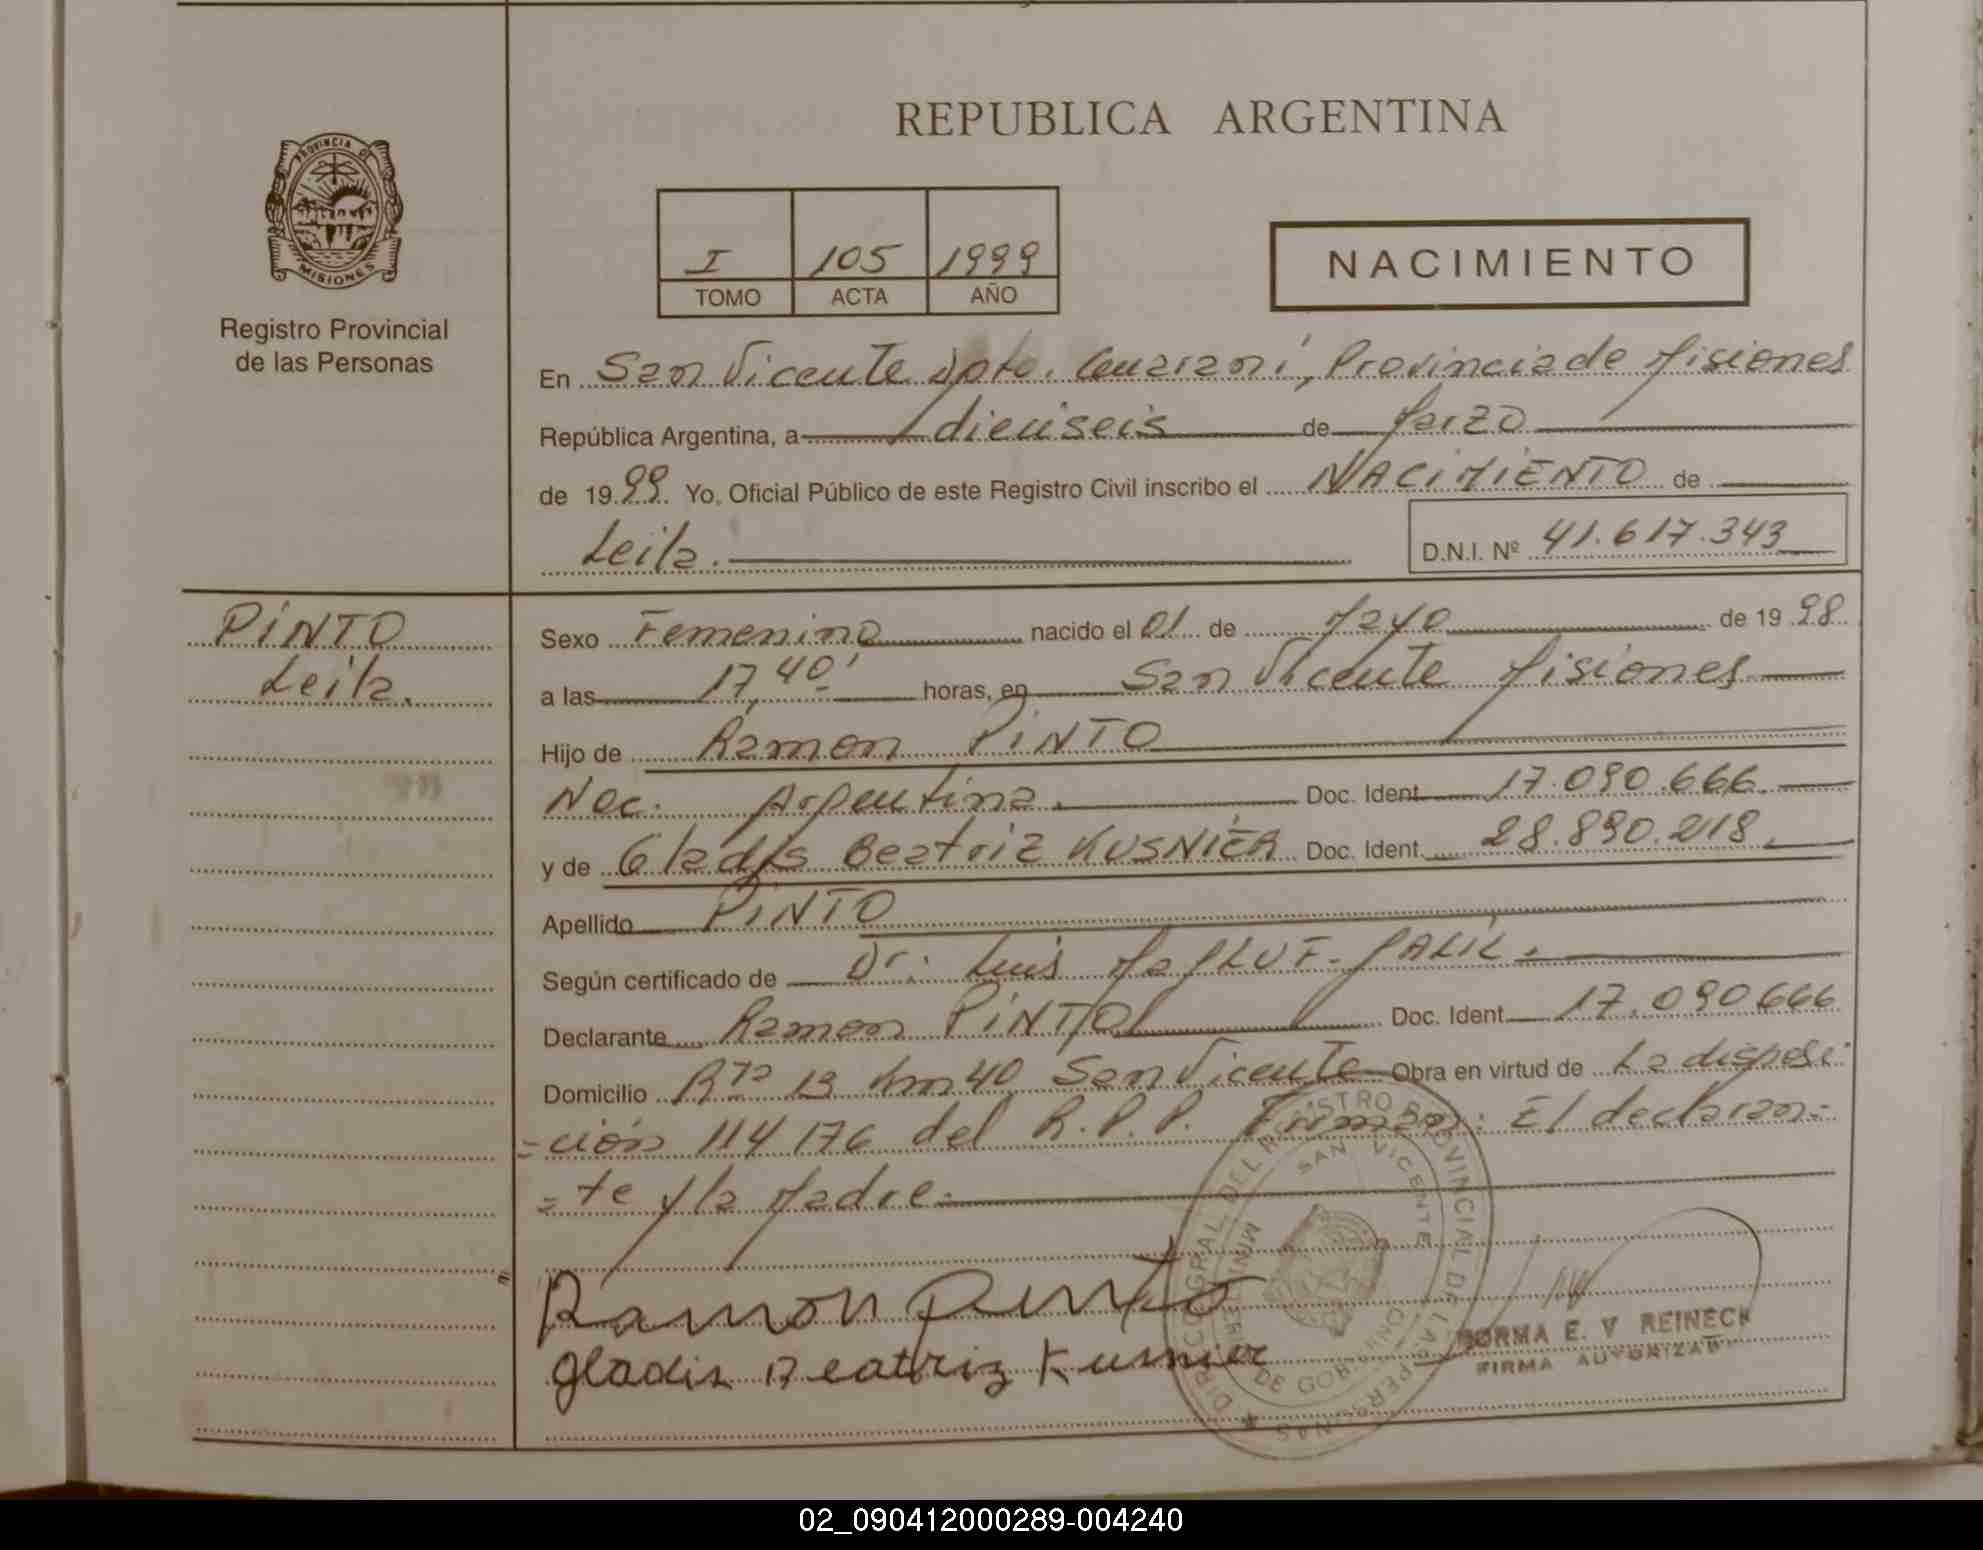 REPUBLICA ARGENTINA
PROVINCIA DE
MISIONES
Registro Provincial
de las Personas
I 105 1999
TOMO ACTA AÑO
NACIMIENTO
En San Vicente Dpto. Guaraní, Provincia de Misiones
República Argentina, a dieciseis de Marzo
de 1999. Yo, Oficial Público de este Registro Civil inscribo el NACIMIENTO de
Leila.
D.N.I. Nº 41.617.343
PINTO
Leila.
Sexo Femenino nacido el 01 de Mayo de 1998
a las 17,40' horas, en San Vicente Misiones
Hijo de Ramon PINTO
Nac. Argentina. Doc. Ident. 17.090.666.
y de Gladys Beatriz KUSNIER Doc. Ident. 28.890.218.
Apellido PINTO
Según certificado de Dr. Luis MALIL.
Declarante Ramon PINTO Doc. Ident. 17.090666
Domicilio Rta 13 km 40 San Vicente Obra en virtud de La disposi-
-ción 114176 del R.P.P. Firman: El declaran-
-te y la Madre.
Ramon Pinto
Gladis Beatriz Kusnier
DIRECC. GRAL. DEL REGISTRO PROVINCIAL DE LAS PERSONAS
SAN VICENTE
MINISTERIO DE GOBIERNO
NORMA E. V REINECK
FIRMA AUTORIZADA
02_090412000289-004240